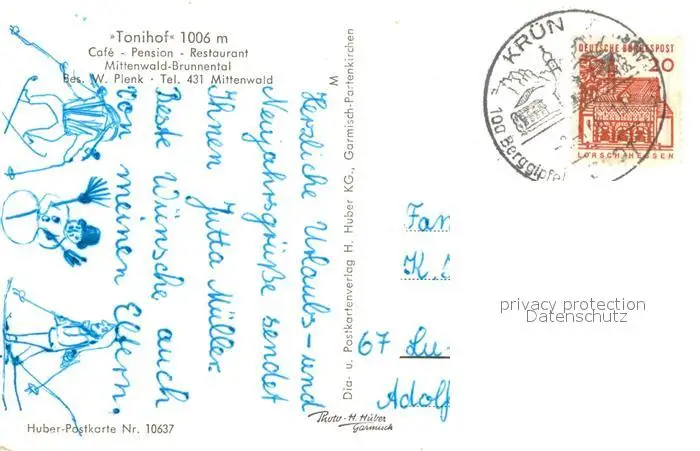 »Tonihof« 1006 m
Café - Pension - Restaurant
Mittenwald-Brunnental
Bes. W. Plenk · Tel. 431 Mittenwald
Herzliche Urlaubs- und
Neujahrsgrüße sendet
Ihnen Jutta Müller.
Beste Wünsche auch
von meinen Eltern.
Huber-Postkarte Nr. 10637
M
Dia- u. Postkartenverlag H. Huber KG., Garmisch-Partenkirchen
Photo-H. Huber
Garmisch
KRÜN
100 Berggipfel
DEUTSCHE BUNDESPOST
20
LORSCH/HESSEN
Fam
K.
67 Lu
Adolf
privacy protection
Datenschutz